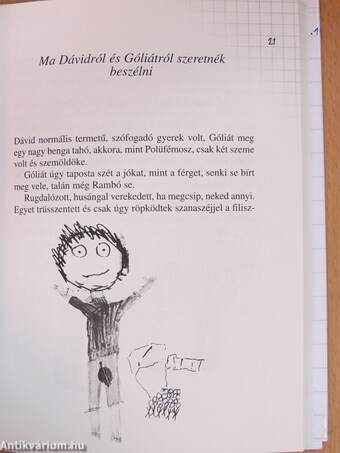 21
Ma Dávidról és Góliátról szeretnék
beszélni
Dávid normális termetű, szófogadó gyerek volt, Góliát meg
egy nagy benga tahó, akkora, mint Polüfémosz, csak két szeme
volt és szemöldöke.
Góliát úgy taposta szét a jókat, mint a férget, senki se bírt
meg vele, talán még Rambó se.
Rugdalózott, husángal verekedett, ha megcsip, neked annyi.
Egyet trüsszentett és csak úgy röpködtek szanaszéjjel a filisz-
Antikvárium.hu